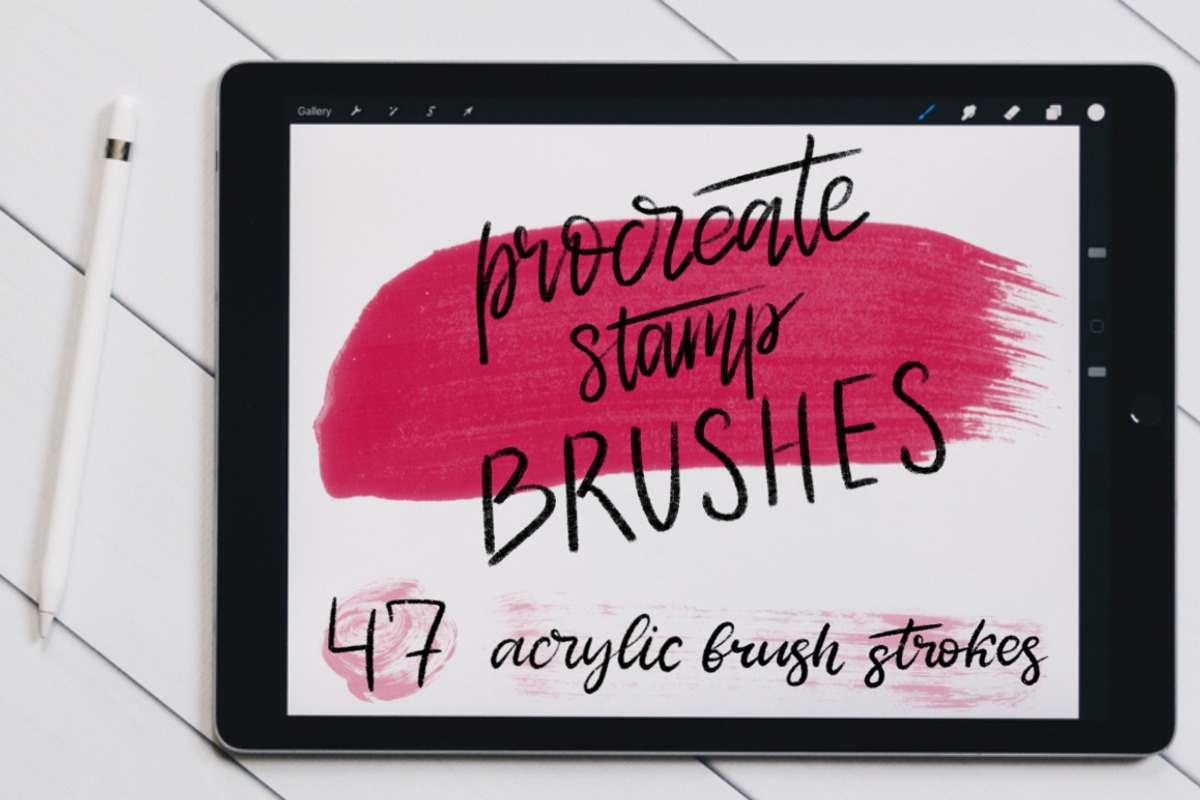 Gallery
procreate
stamp
BRUSHES
47 acrylic brush strokes